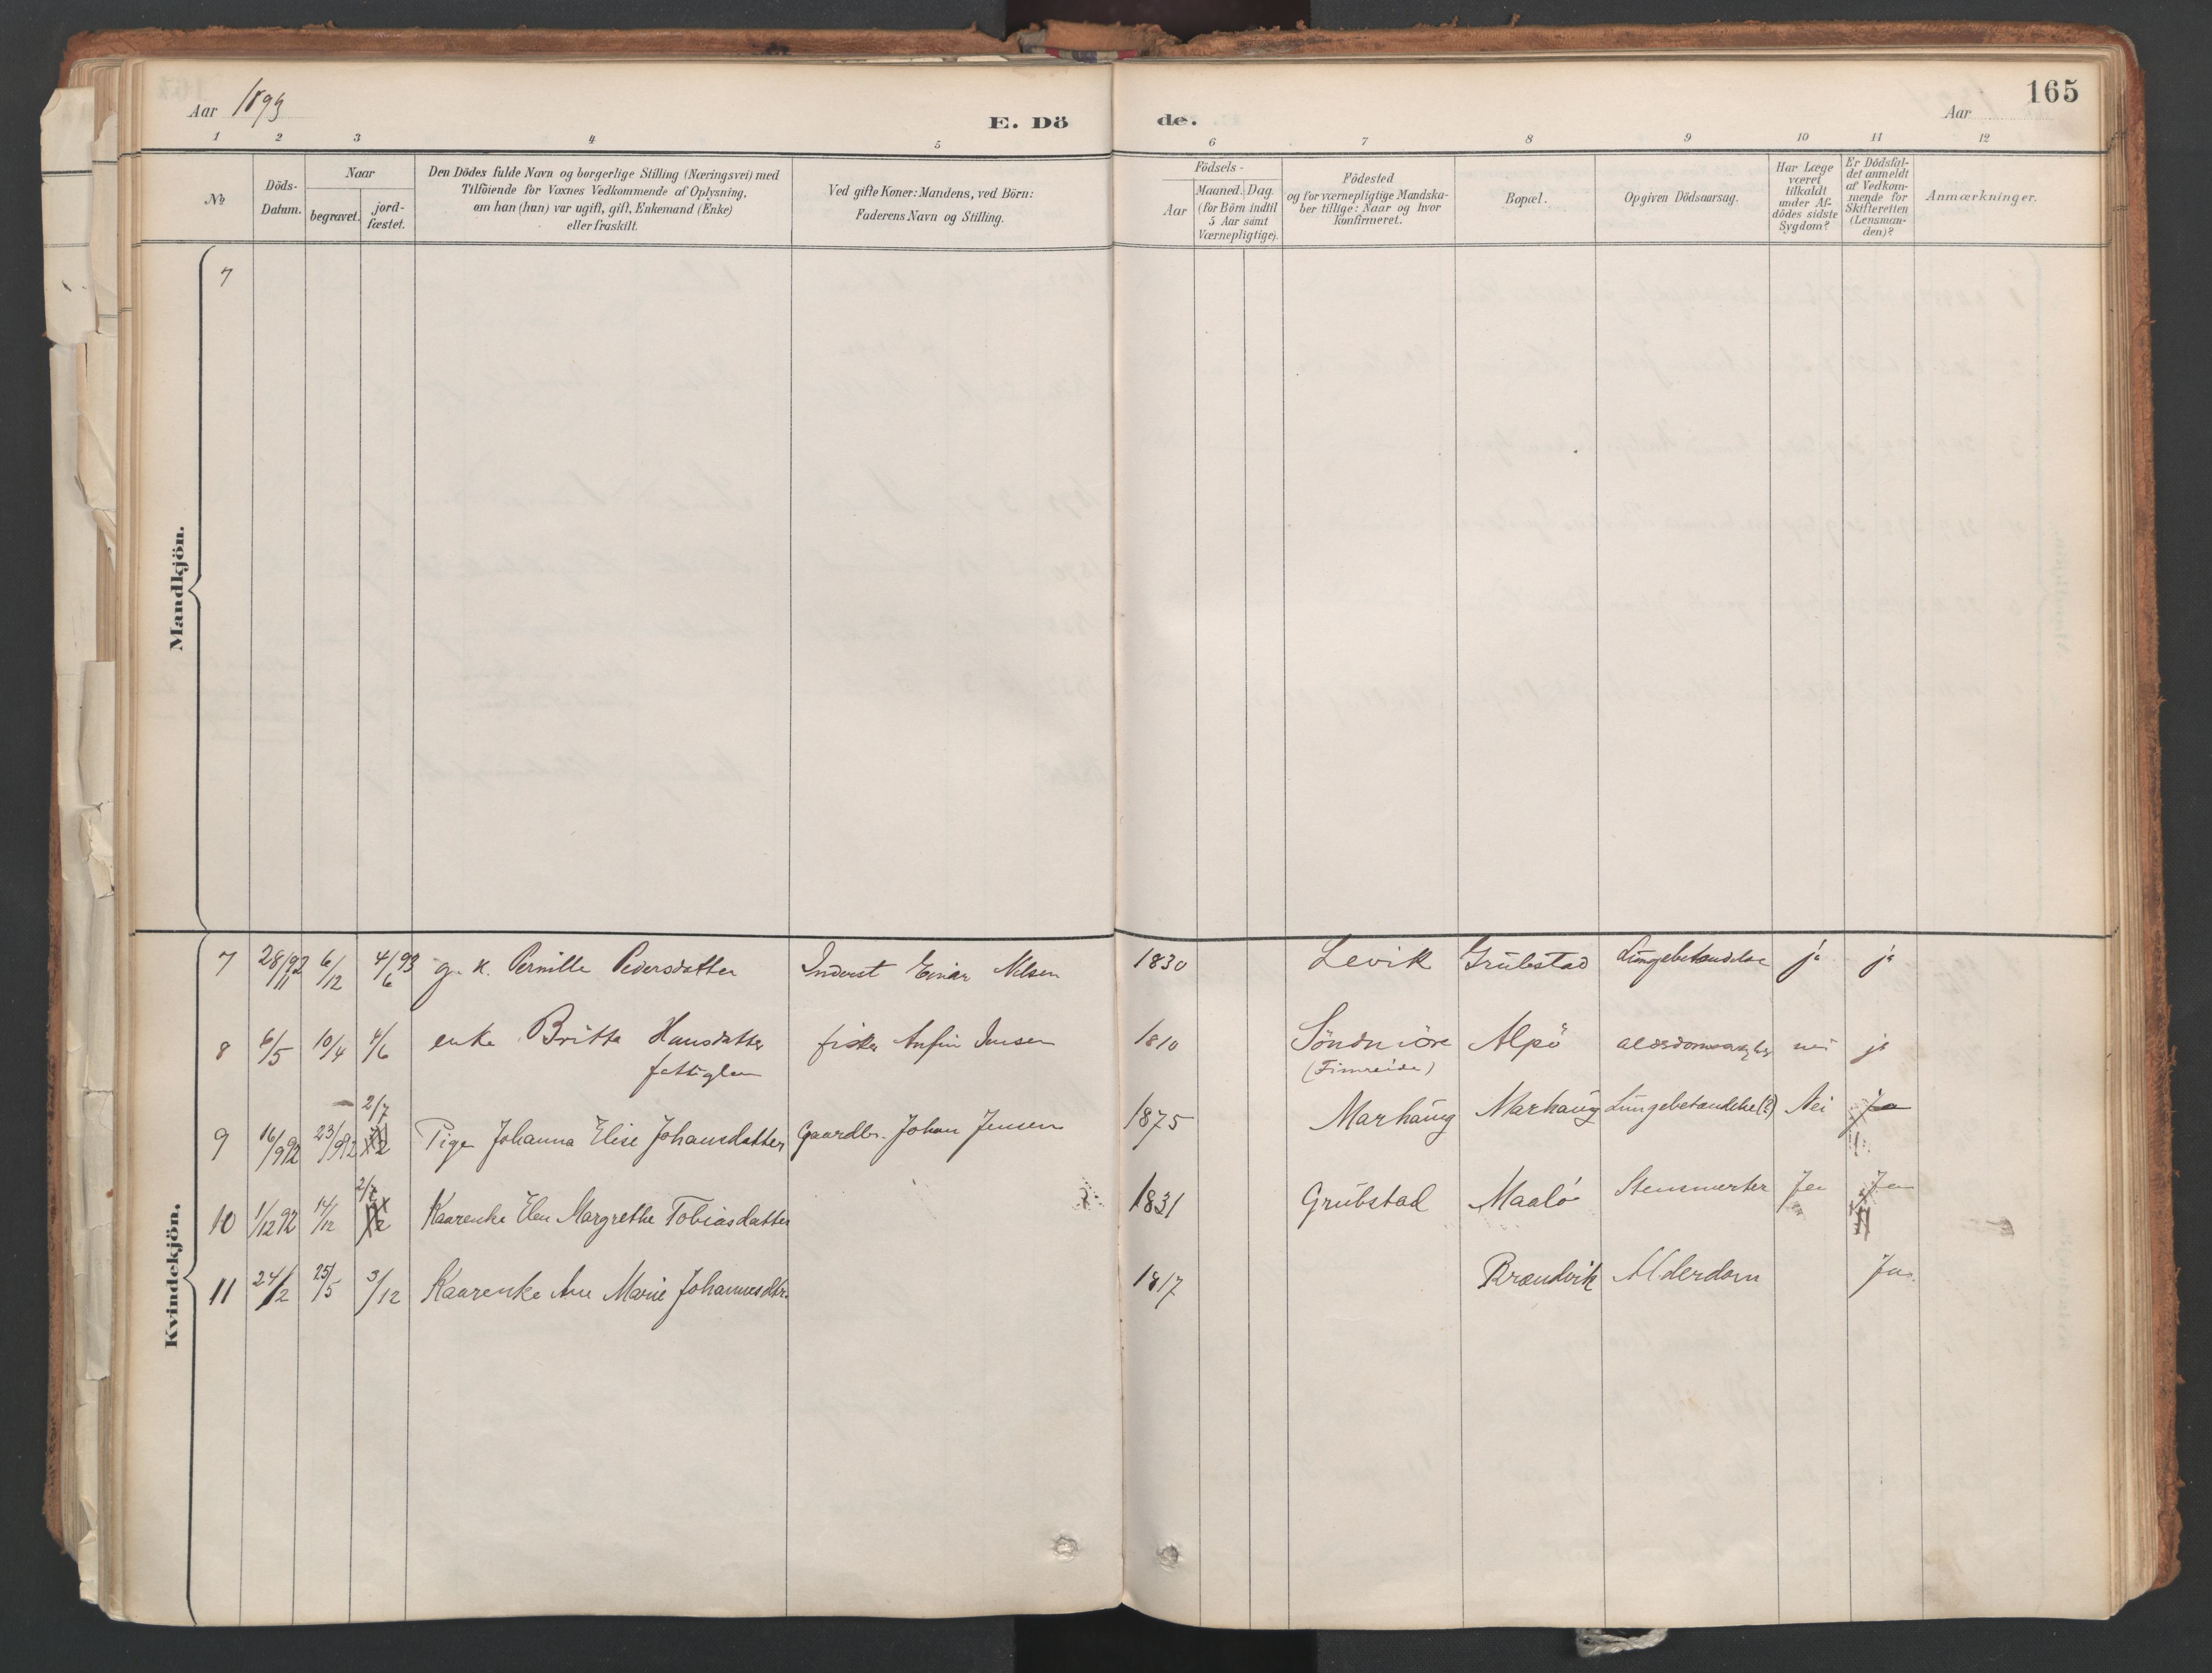 165
Aar 1893
E. Dö de.
Aar
1 2 3 4 5 6 7 8 9 10 11 12
No
Döds-Datum.
Naar
begravet.
jord-fæstet.
Den Dödes fulde Navn og borgerlige Stilling (Næringsvei) med
Tilföiende for Voxnes Vedkommende af Oplysning,
om han (hun) var ugift, gift, Enkemand (Enke)
eller fraskilt.
Ved gifte Koner: Mandens, ved Börn:
Faderens Navn og Stilling.
Födsels-
Aar
Maaned. Dag.
(for Börn indtil
5 Aar samt
Værnepligtige).
Födested
og for værnepligtige Mandska-
ber tillige: Naar og hvor
konfirmeret.
Bopæl.
Opgiven Dödsaarsag.
Har Læge
været
tilkaldt
under Af-
dödes sidste
Sygdom?
Er Dödsfal-
det anmeldt
af Vedkom-
mende for
Skifteretten
(Lensman-
den)?
Anmærkninger.
Mandkjön.
7
Kvindekjön.
7 28/11 92 6/12 4/6 93 g. k. Pernille Pedersdatter Inderst Einar Nilsen 1830 Levik Grübstad Lungebetændelse ja ja
8 6/5 10/4 4/6 enke Britte Hansdatter fisker Anfin Jensen 1810 Söndmöre Alpö nei ja
fattiglem (Fimreide)
9 16/9 92 23/9 92 2/7 Pige Johanna Elise Johansdatter Gaardbr. Johan Jensen 1875 Marhaüg Marhaüg Lungebetændelse (?) Nei Ja
10 1/12 92 14/12 2/7 Kaarenke Elen Margrethe Tobiasdatter 1831 Grübstad Maalö Stensmerter Ja Ja
11 24/2 25/5 3/12 Kaarenke Ane Marie Johannesdtr. 1817 Brændvik Alderdom Ja